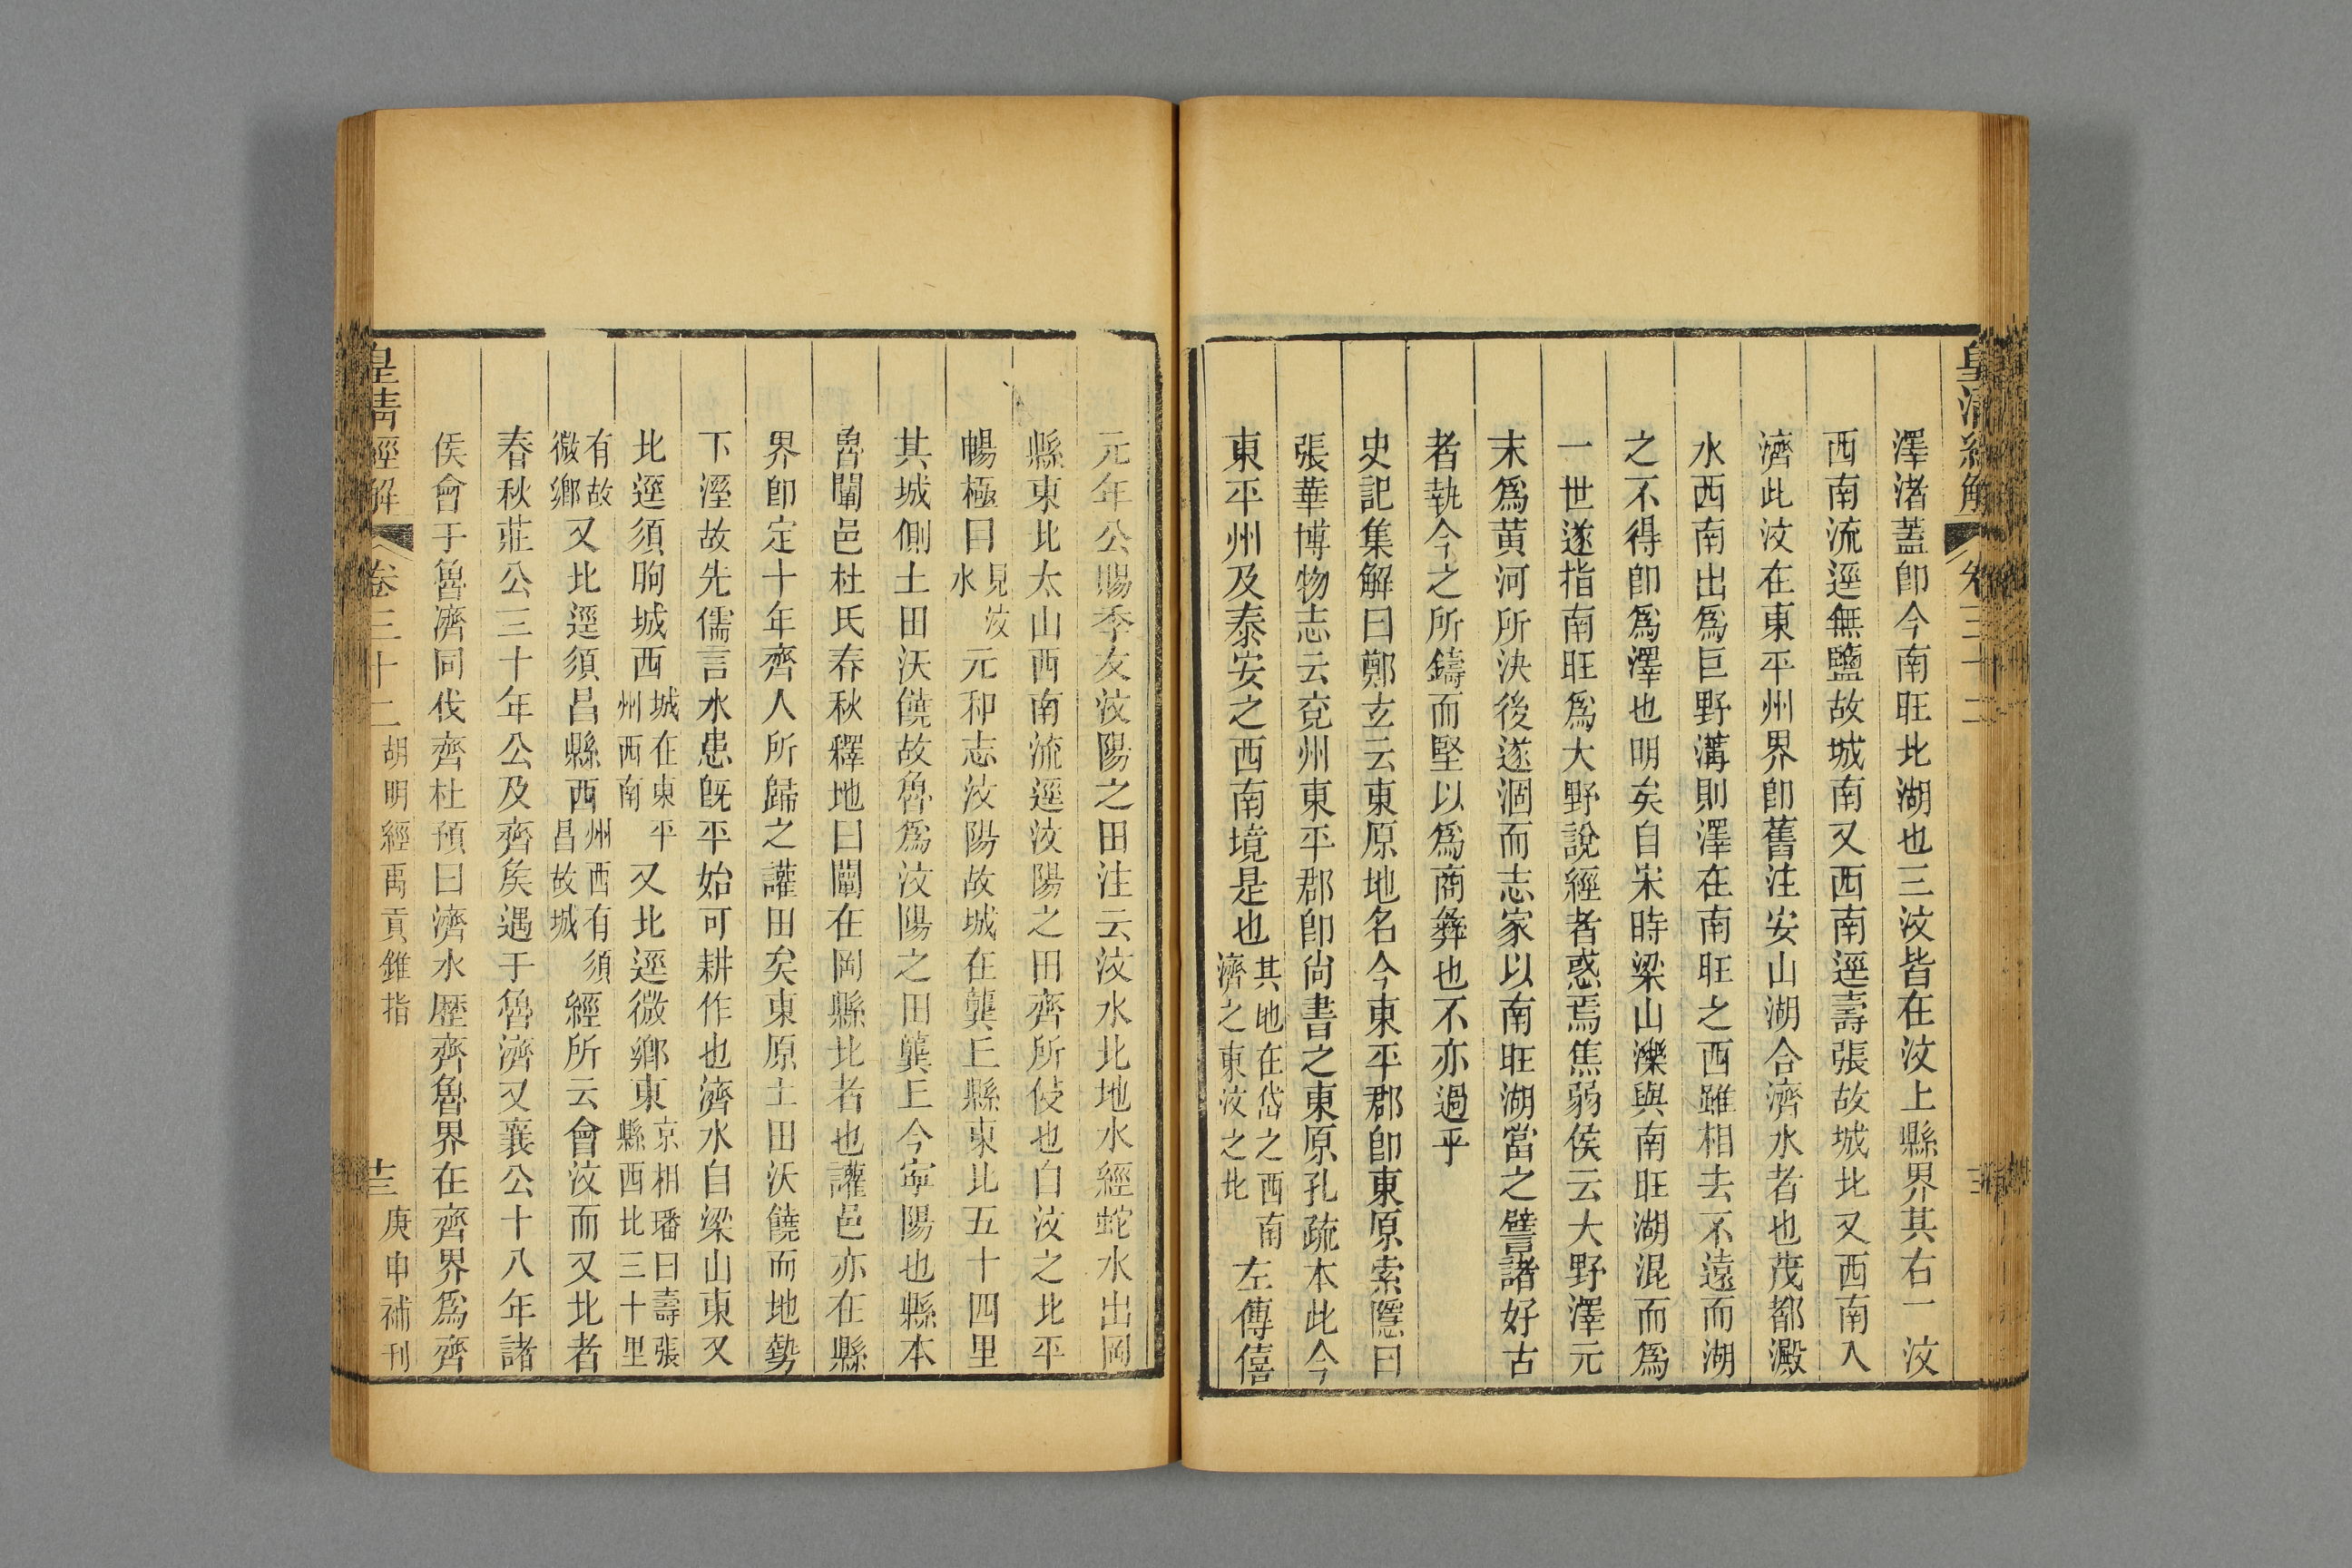 皇清經解 卷三十二
澤渚蓋卽今南旺北湖也三汶皆在汶上縣界其右一汶
西南流逕無鹽故城南又西南逕壽張故城北又西南入
濟此汶在東平州界卽舊注安山湖合濟水者也茂都澱
水西南出爲巨野溝則澤在南旺之西雖相去不遠而湖
之不得卽爲澤也明矣自宋時梁山濼與南旺湖混而爲
一世遂指南旺爲大野說經者惑焉焦弱侯云大野澤元
末爲黃河所決後遂涸而志家以南旺湖當之譬諸好古
者執今之所鑄而堅以爲商彝也不亦過乎
史記集解曰鄭玄云東原地名今東平郡卽東原索隱曰
張華博物志云兗州東平郡卽尙書之東原孔疏本此今
東平州及泰安之西南境是也其地在岱之西南濟之東汶之北左傳僖
元年公賜季友汶陽之田注云汶水北地水經蛇水出岡
縣東北太山西南流逕汶陽之田齊所侵也自汶之北平
暢極目見汶水元和志汶陽故城在龔丘縣東北五十四里
其城側土田沃饒故魯爲汶陽之田龔丘今寧陽也縣本
魯闡邑杜氏春秋釋地曰闡在岡縣北者也讙邑亦在縣
界卽定十年齊人所歸之讙田矣東原土田沃饒而地勢
下溼故先儒言水患旣平始可耕作也濟水自梁山東又
北逕須朐城西城在東平州西南又北逕微鄉東京相璠曰壽張縣西北三十里
有故微鄉又北逕須昌縣西州西有須昌故城經所云會汶而又北者
春秋莊公三十年公及齊矦遇于魯濟又襄公十八年諸
侯會于魯濟同伐齊杜預曰濟水歷齊魯界在齊界爲齊
皇清經解 卷三十二 胡明經禹貢錐指 庚申補刊